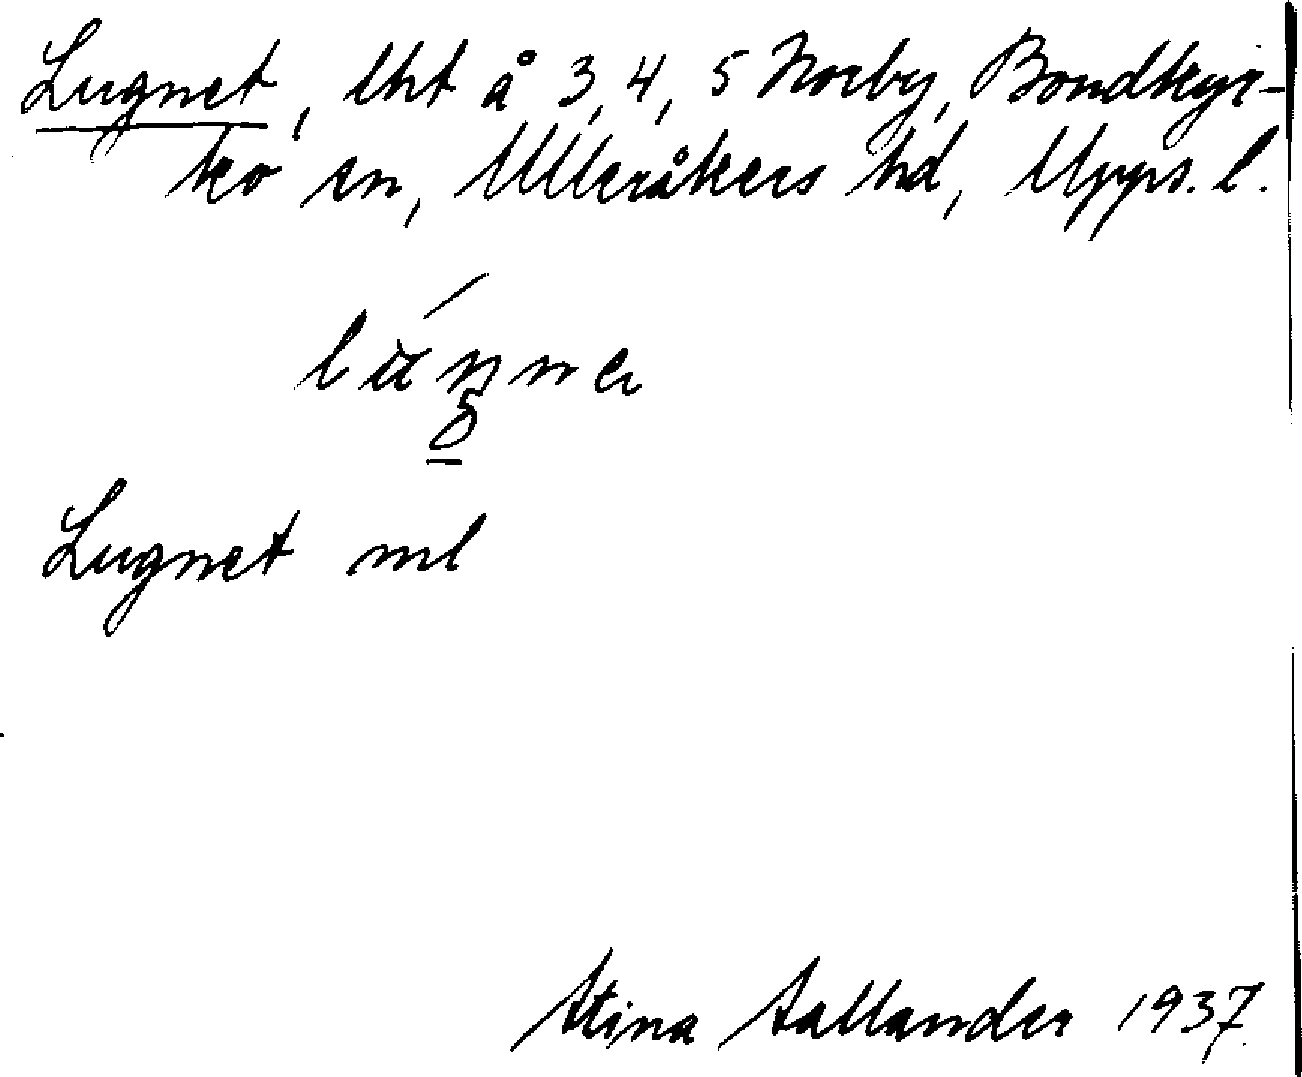 Lugnet, lht å 3, 4, 5 Norby, Bondkyr-
ko sn, Ulleråkers hd, Upps. l.
Lugnet ml
Stina Sallander 1937